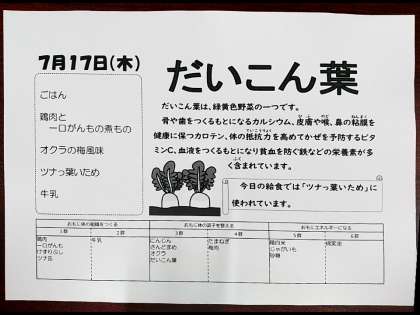 7月17日(木)
だいこん葉
ごはん
鶏肉と
一口がんもの煮もの
オクラの梅風味
ツナっ葉いため
牛乳
だいこん葉は、緑黄色野菜の一つです。
骨や歯をつくるもとになるカルシウム、皮膚や喉、鼻の粘膜を
健康に保つカロテン、体の抵抗力を高めてかぜを予防するビタ
ミンC、血液をつくるもとになり貧血を防ぐ鉄などの栄養素が多
く含まれています。
今日の給食では「ツナっ葉いため」に
使われています。
おもに体の組織をつくる おもに体の調子を整える おもにエネルギーになる
1群 2群 3群 4群 5群 6群
鶏肉 牛乳 にんじん たまねぎ 精白米
一口がんも さんどまめ 梅肉 じゃがいも
けずりぶし オクラ 砂糖
ツナ缶 だいこん葉